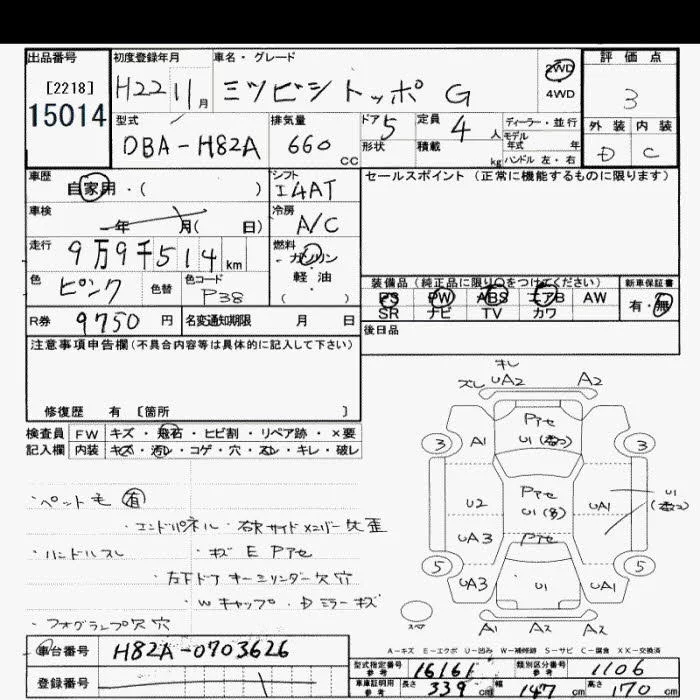 出品番号
[2218]
15014
初度登録年月
H22 11月
車名・グレード
ミツビシ トッポ G
2WD
4WD
評価点
3
外装 内装
D C
型式
DBA-H82A
排気量
660 CC
ドア 5
形状
定員 4 人
積載 kg
ディーラー・並行
モデル
年式 年
ハンドル 左・右
車歴
自家用・( )
シフト
I4AT
車検
年 月( 日)
冷房
A/C
走行
9万9千514 km
燃料
ガソリン
軽・油
( )
色
ピンク
色替
色コード
P38
R券 9750 円
名変通知期限 月 日
セールスポイント (正常に機能するものに限ります)
装備品 (純正品に限り○をつけてください)
PS PW ABS エアB AW
SR ナビ TV カワ
新車保証書
有・無
後日品
注意事項申告欄(不具合内容等は具体的に記入して下さい)
修復歴 有 〔箇所 〕
検査員 FW キズ・飛石・ヒビ割・リペア跡・×要
記入欄 内装 キズ・汚レ・コゲ・穴・スレ・キレ・破レ
・ペット毛 有
・エンドパネル・右サイドメンバー 歪
・ハンドルスレ ・キズ E Pアセ
・左下ドア キーシリンダー欠 穴
・Wキャップ・Dミラーキズ
・フォグランプ欠 穴
キレ
ズレ UA2 A2
Pアセ
U1
3 A1 3
U2 Pアセ
U1(多) UA1 U1
UA3 Pアセ
5 5
UA3 U1 UA1
スペア
A1 A2 A2
A-キズ E-エクボ U-凹み W-補修跡 S-サビ C-腐食 XX-交換済
車台番号 H82A-0703626
登録番号
型式指定番号
参考 16161
類別区分番号
参考 1106
車庫証明用
参考
長さ 339 cm 幅 147 cm 高さ 170 cm